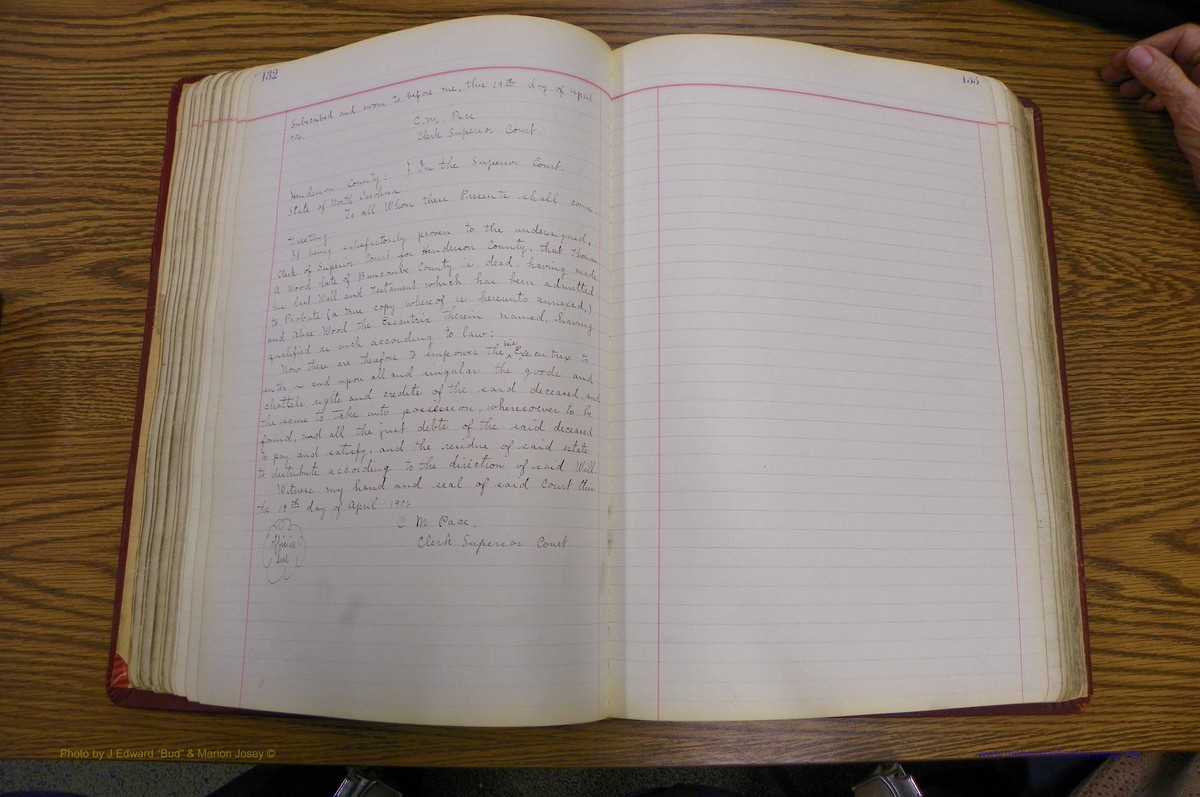 132
Subscribed and sworn to before me, this 19th day of April
C. M. Pace
Clerk Superior Court.
Henderson County. } In the Superior Court.
State of North Carolina
To all Whom these Presents shall come
Greeting:
It being satisfactorily proven to the undersigned,
Clerk of Superior Court for Henderson County, that Thomas
A Wood late of Buncombe County is dead, having made
his last Will and Testament which has been admitted
to Probate (a true copy whereof is hereunto annexed,)
and Alice Wood the Executrix therein named, having
qualified as such according to law:
Now these are therefore to empower the said Executrix to
enter in and upon all and singular the goods and
chattels, rights and credits of the said deceased, and
the same to take into possession, wheresoever to be
found, and all the just debts of the said deceased
to pay and satisfy, and the residue of said estate
to distribute according to the direction of said Will
Witness my hand and seal of said Court this
the 19th day of April 1906
C M Pace,
Clerk Superior Court.
Official
Seal
133
Photo by J Edward "Bud" & Marion Josey ©